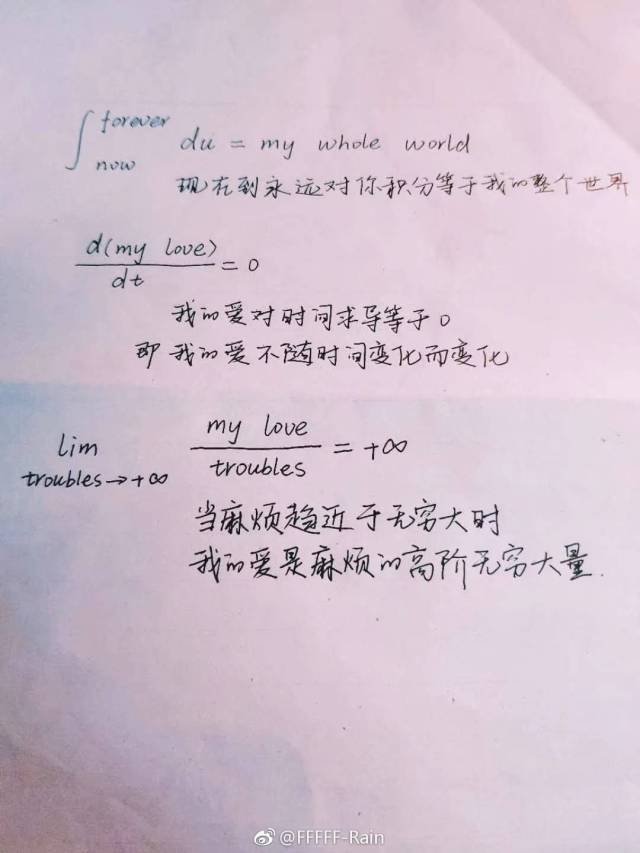 ∫ forever now du = my whole world
现在到永远对你积分等于我的整个世界
d(my love)/dt = 0
我的爱对时间求导等于0
即我的爱不随时间变化而变化
lim troubles→+∞ my love/troubles = +∞
当麻烦趋近于无穷大时
我的爱是麻烦的高阶无穷大量.
@FFFFF-Rain